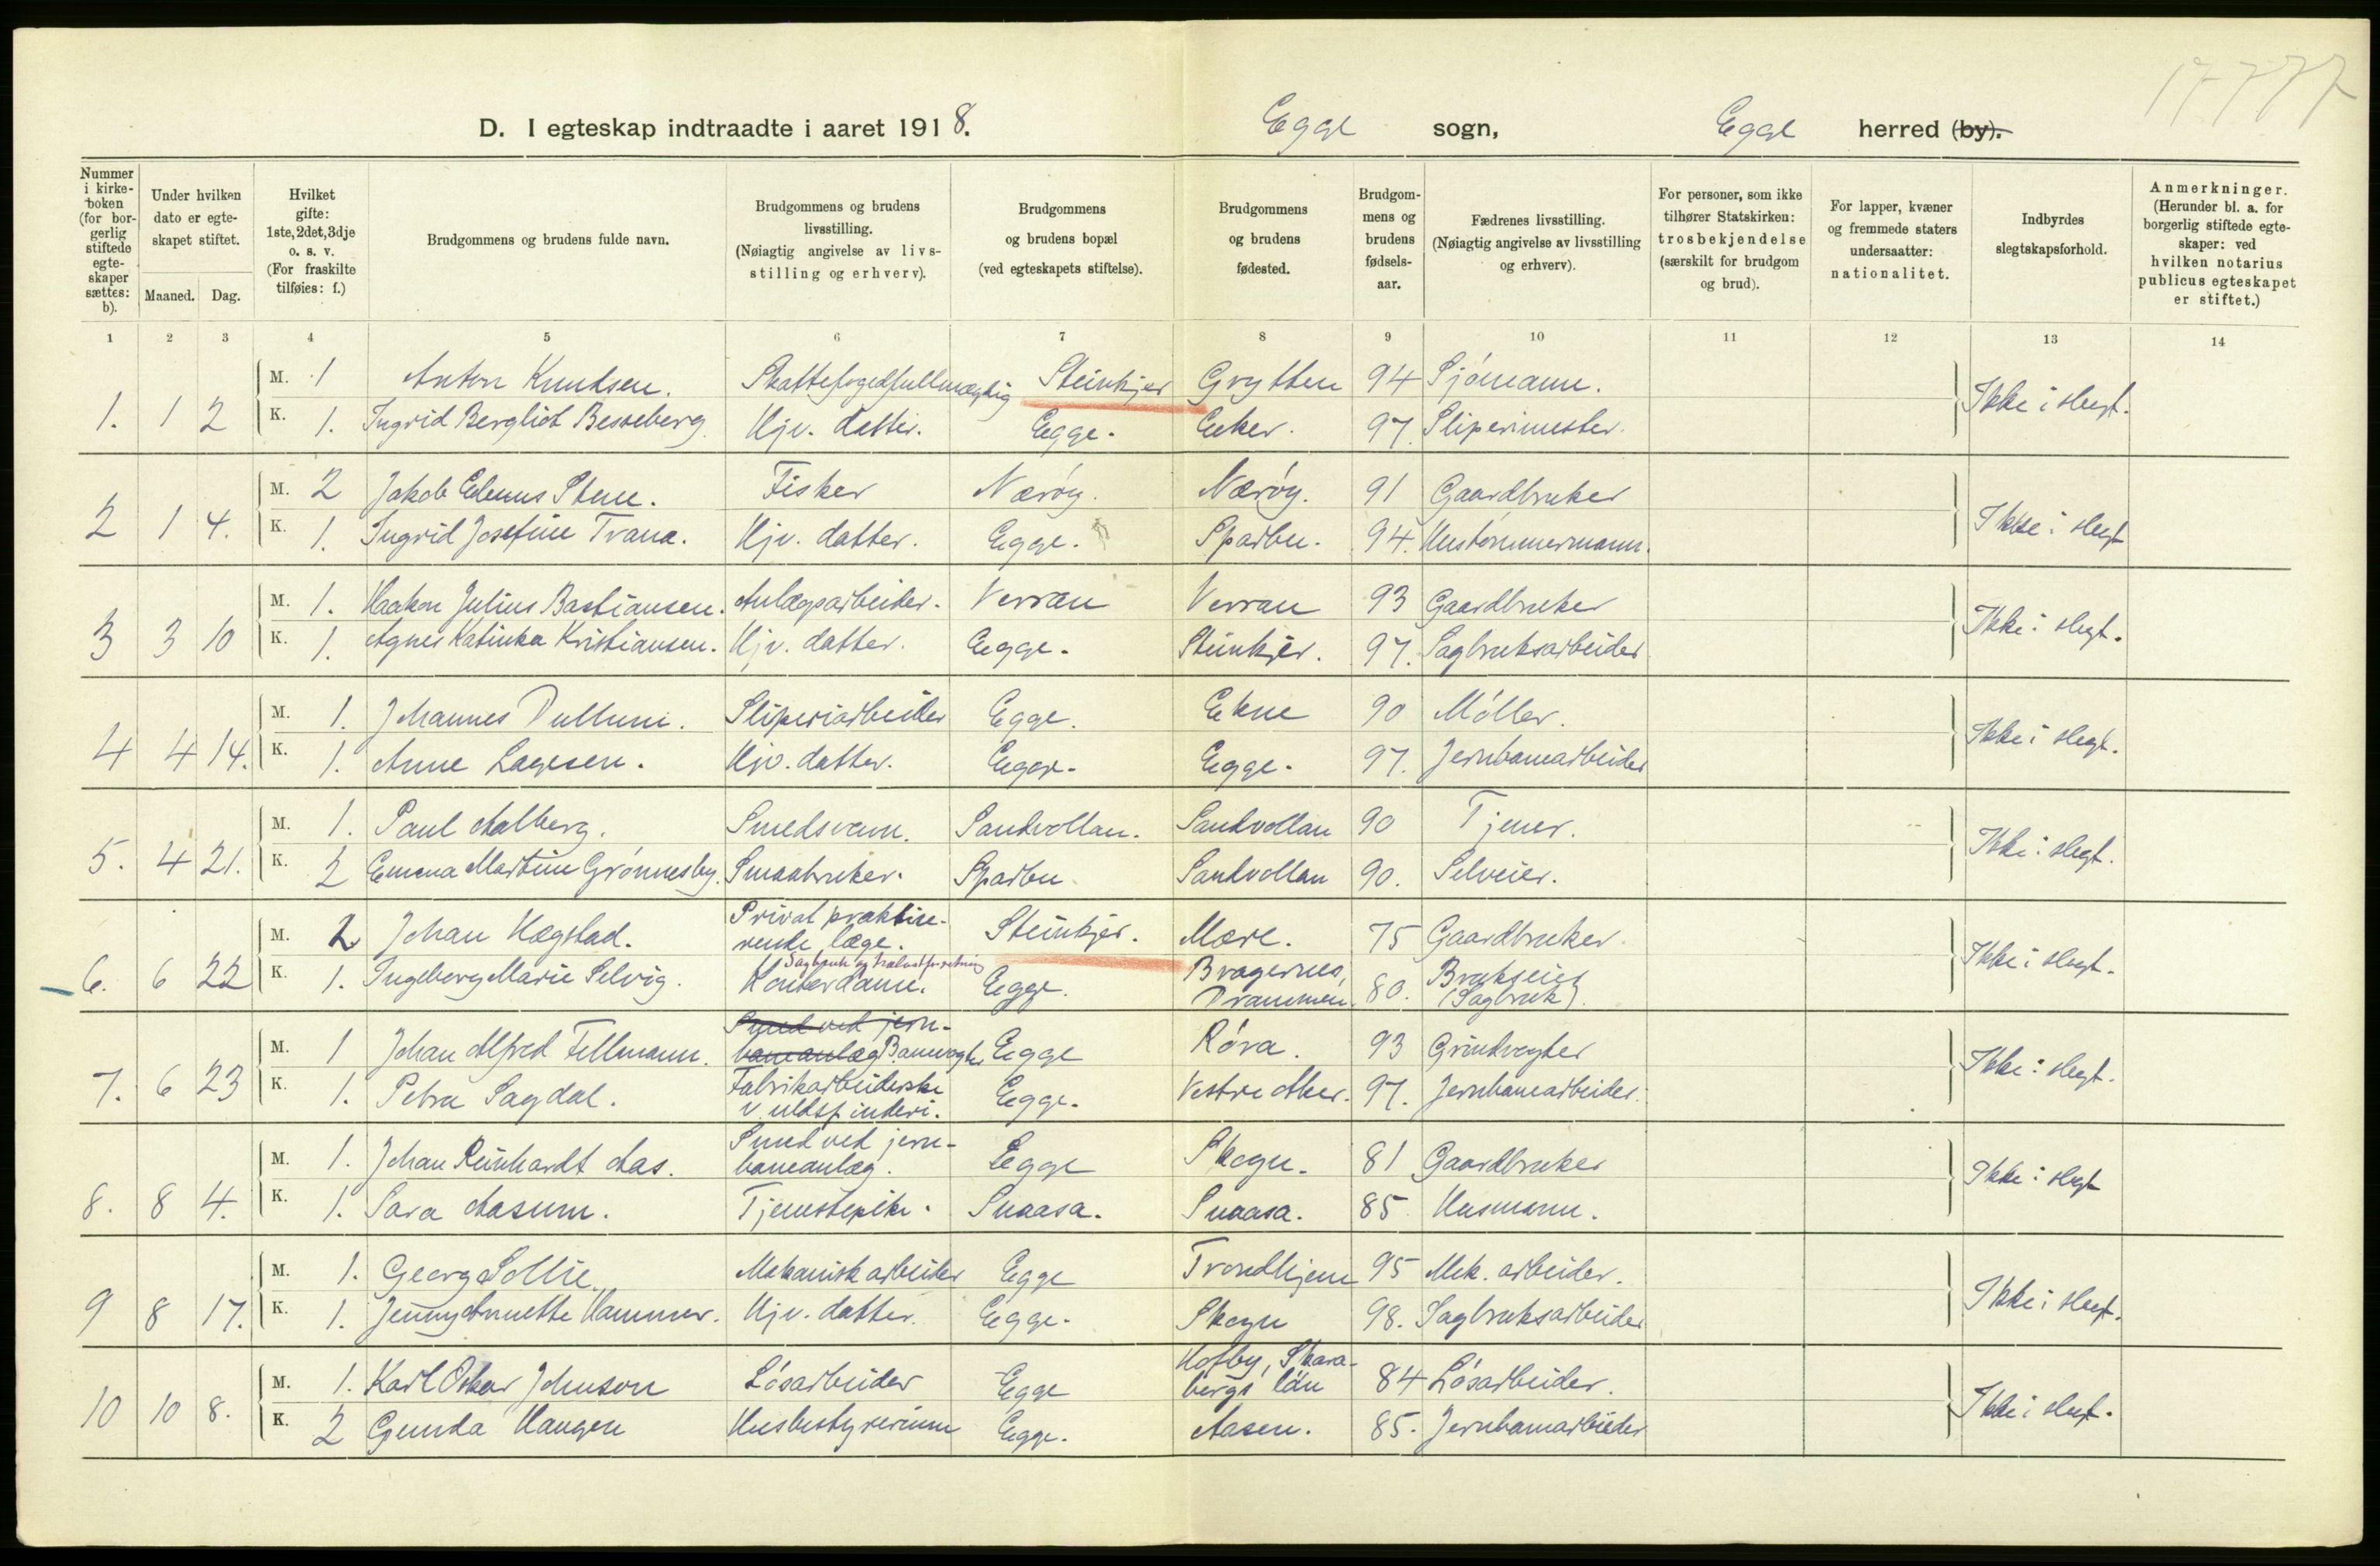 17777
D. I egteskap indtraadte i aaret 1918. Egge sogn, Egge herred (by).
Nummer i kirkeboken (for borgerlig stiftede egteskaper sættes: b).
Under hvilken dato er egteskapet stiftet.
Maaned. Dag.
Hvilket gifte: 1ste, 2det, 3dje o. s. v. (For fraskilte tilføies: f.)
Brudgommens og brudens fulde navn.
Brudgommens og brudens livsstilling. (Nøiagtig angivelse av livsstilling og erhverv).
Brudgommens og brudens bopæl (ved egteskapets stiftelse).
Brudgommens og brudens fødested.
Brudgommens og brudens fødselsaar.
Fædrenes livsstilling. (Nøiagtig angivelse av livsstilling og erhverv).
For personer, som ikke tilhører Statskirken: trosbekjendelse (særskilt for brudgom og brud).
For lapper, kvæner og fremmede staters undersaatter: nationalitet.
Indbyrdes slegtskapsforhold.
Anmerkninger. (Herunder bl. a. for borgerlig stiftede egteskaper: ved hvilken notarius publicus egteskapet er stiftet.)
1 2 3 4 5 6 7 8 9 10 11 12 13 14
M. 1 Anton Knudsen. Skattefogedfullmægtig Steinkjer Grytten 94 Sjómann.
1. 1 2 K. 1. Ingrid Bergliot Besseberg. Hjv. datter. Egge. Eker. 97. Sliperimester. Ikke i slegt.
M. 2 Jakob Edenus Stene. Fisker Nærøy. Nærøy. 91 Gaardbruker
2 1 4. K. 1. Ingrid Josefine Trana. Hjv. datter. Egge. Sparbu. 94. Hustømmermann. Ikke i slegt
M. 1. Haakon Julius Bastiansen. Anlægsarbeider. Verran Verran 93 Gaardbruker
3 3 10 K. 1. Agnes Katinka Kristiansen. Hjv. datter. Egge. Steinkjer. 97. Sagbruksarbeider Ikke i slegt.
M. 1. Johannes Dullum. Sliperiarbeider Egge. Ekne 90 Møller.
4 4 14. K. 1. Anne Lagesen. Hjv. datter. Egge. Egge. 97. Jernbanearbeider Ikke i slegt.
M. 1. Paul Aalberg. Smedsvenn. Sandvollan. Sandvollan 90 Tjener.
5. 4 21. K. 2 Emma Martine Grønnesby. Smaabruker. Sparbu Sandvollan 90. Selveier. Ikke i slegt.
M. 2 Johan Hægstad. Privat praktiserende læge. Steinkjer. Mære. 75 Gaardbruker.
6. 6 22 K. 1. Ingeborg Marie Selvig. Sagbruk og trælastforretning Kontordame. Egge. Bragernes, Drammen. 80. Brukseier (Sagbruk). Ikke i slegt.
M. 1 Johan Alfred Fellmann. Smed ved jernbaneanlæg Banevogter Egge Róra. 93 Grindvogter
7. 6 23 K. 1. Petra Sagdal. Fabrikarbeiderske v. uldspinderi. Egge. Vestre Aker. 97. Jernbanearbeider. Ikke i slegt.
M. 1. Johan Reinhardt Aas. Smed ved jernbaneanlæg. Egge Skogn. 81 Gaardbruker
8. 8 4. K. 1. Sara Aasum. Tjenestepike. Snaasa. Snaasa. 85 Husmann. Ikke i slegt
M. 1. Georg Sollie. Mekanisk arbeider Egge Trondhjem 95 Mek. arbeider.
9 8 17. K. 1. Jenny Annette Hammer. Hjv. datter. Egge. Skogn 98. Sagbruksarbeider Ikke i slegt.
M. 1. Karl Oskar Johnson Løsarbeider Egge Hofby, Skarabergs län 84 Løsarbeider.
10 10 8. K. 2 Gunda Haugen Husbestyrerinne Egge. Aasen. 85. Jernbanearbeider Ikke i slegt.